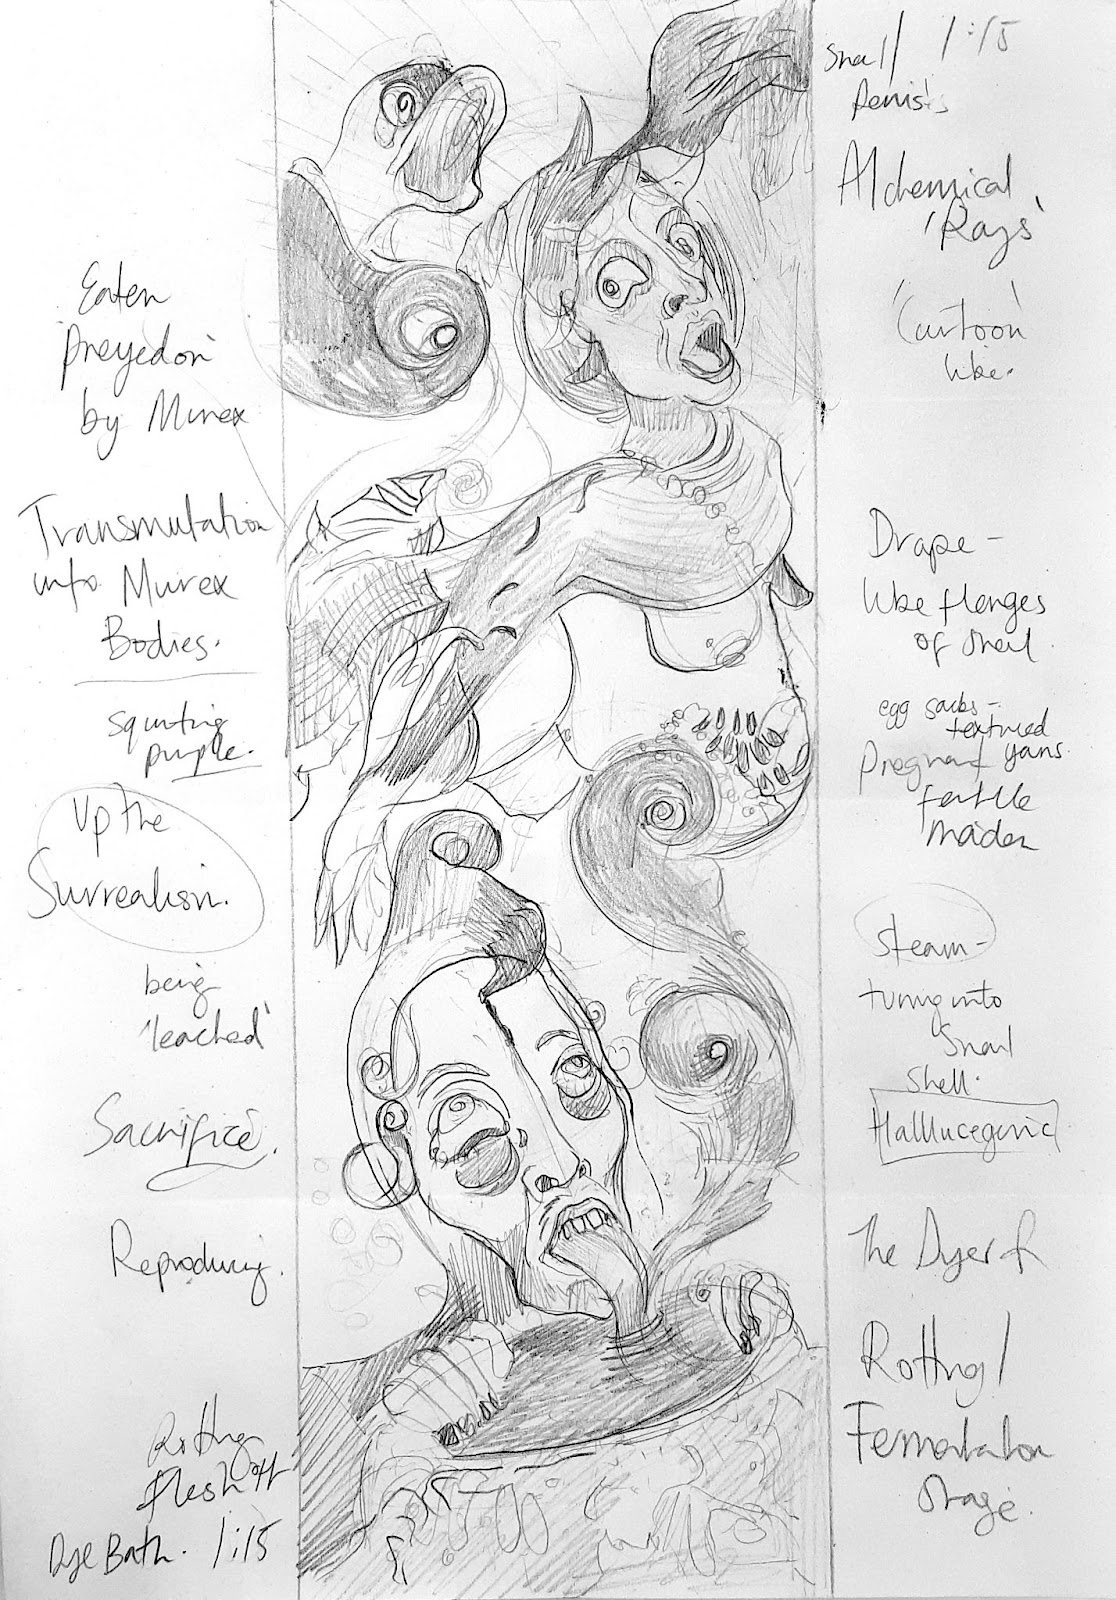 Eaten
'preyedon'
by Murex
Transmutation
into Murex
Bodies.
squirting
purple.
Up the
Surrealism.
being
'leached'
Sacrifice.
Reproducing.
Rotting
flesh off
Dye Bath. 1:15
Snail/ 1:15
Penis
Alchemical
'Rays'
'Cartoon'
like.
Drape-
like flanges
of snail
egg sacks-
textured
yarns.
Pregnant
fertile
maiden
Steam-
turning into
Snail
Shell.
Halllucegenic
The Dyer
Rotting/
Fermentation
Stage.